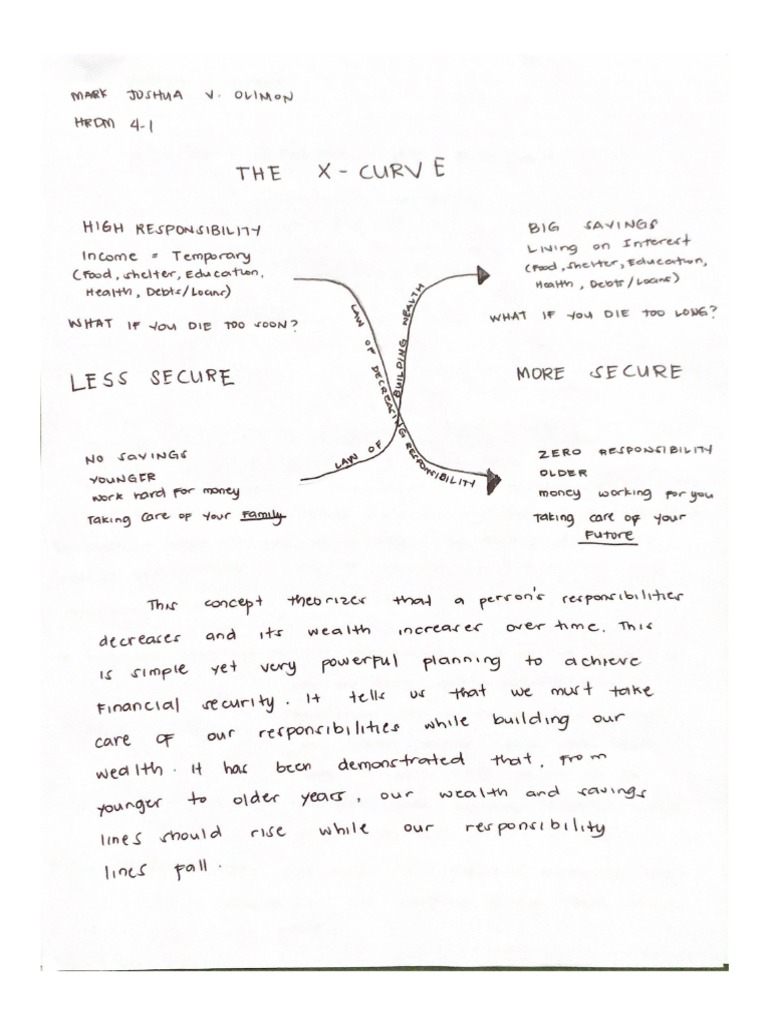 MARK JOSHUA V. OLIMON
HRDM 4-1
THE X-CURVE
HIGH RESPONSIBILITY
Income = Temporary
(Food, shelter, Education,
Health, Debts/Loans)
WHAT IF YOU DIE TOO SOON?
LESS SECURE
NO SAVINGS
YOUNGER
work hard for money
Taking care of your Family
LAW OF DECREASING RESPONSIBILITY
LAW OF BUILDING WEALTH
BIG SAVINGS
Living on Interest
(Food, shelter, Education,
Health, Debts/Loans)
WHAT IF YOU DIE TOO LONG?
MORE SECURE
ZERO RESPONSIBILITY
OLDER
money working for you
Taking care of your
Future
This concept theorizes that a person's responsibilities
decreases and its wealth increases over time. This
is simple yet very powerful planning to achieve
financial security. It tells us that we must take
care of our responsibilities while building our
wealth. It has been demonstrated that, from
younger to older years, our wealth and savings
lines should rise while our responsibility
lines fall.